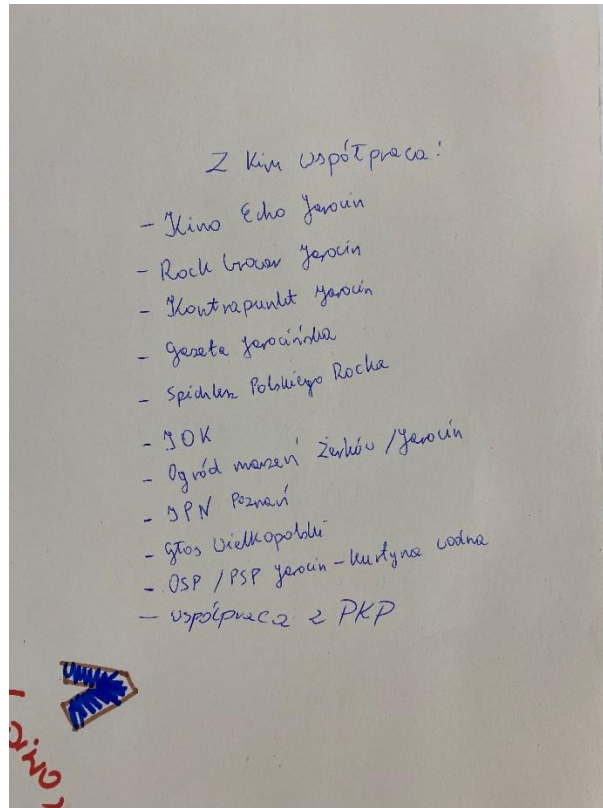 Z kim współpraca:
- Kino Echo Jarocin
- Rock Jarocin
- Kontrapunkt Jarocin
- Gazeta Jarocińska
- Spichlerz Polskiego Rocka
- JOK
- Ogród marzeń Żerków / Jarocin
- IPN Poznań
- Głos Wielkopolski
- OSP / PSP Jarocin - kurtyna wodna
- współpraca z PKP